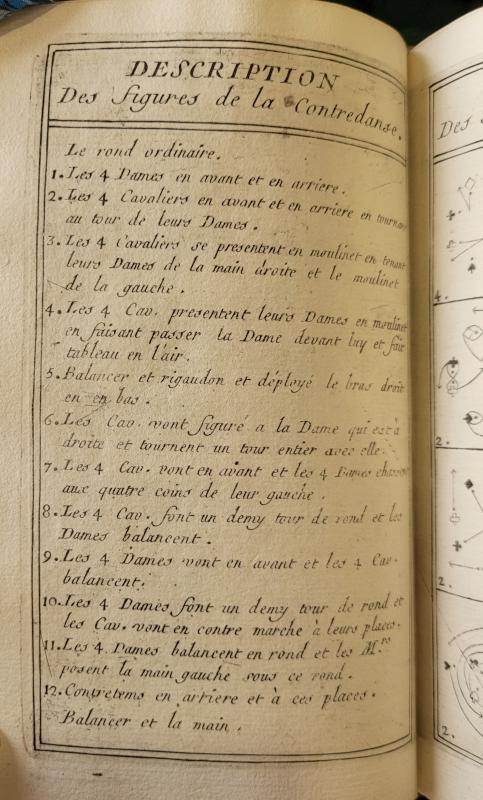 DESCRIPTION
Des figures de la Contredanse.
Le rond ordinaire.
1. Les 4 Dames en avant et en arriere.
2. Les 4 Cavaliers en avant et en arriere en tournant
au tour de leurs Dames.
3. Les 4 Cavaliers se presentent en moulinet en tenant
leurs Dames de la main droite et le moulinet
de la gauche.
4. Les 4 Cav. presentent leurs Dames en moulinet
en faisant passer la Dame devant luy et fait
tableau en l'air.
5. Balancer et rigaudon et déployé le bras droit
en en bas.
6. Les Cav. vont figuré a la Dame qui est à
droite et tournent un tour entier avec elle.
7. Les 4 Cav. vont en avant et les 4 Dames chassent
aux quatre coins de leur gauche.
8. Les 4 Cav. font un demy tour de rond et les
Dames balancent.
9. Les 4 Dames vont en avant et les 4 Cav.
balancent.
10. Les 4 Dames font un demy tour de rond et
les Cav. vont en contre marche à leurs places.
11. Les 4 Dames balancent en rond et les Mrs
posent la main gauche sous ce rond.
12. Contretems en arriere et à ces places.
Balancer et la main.
Des
4.
2.
2.
2.